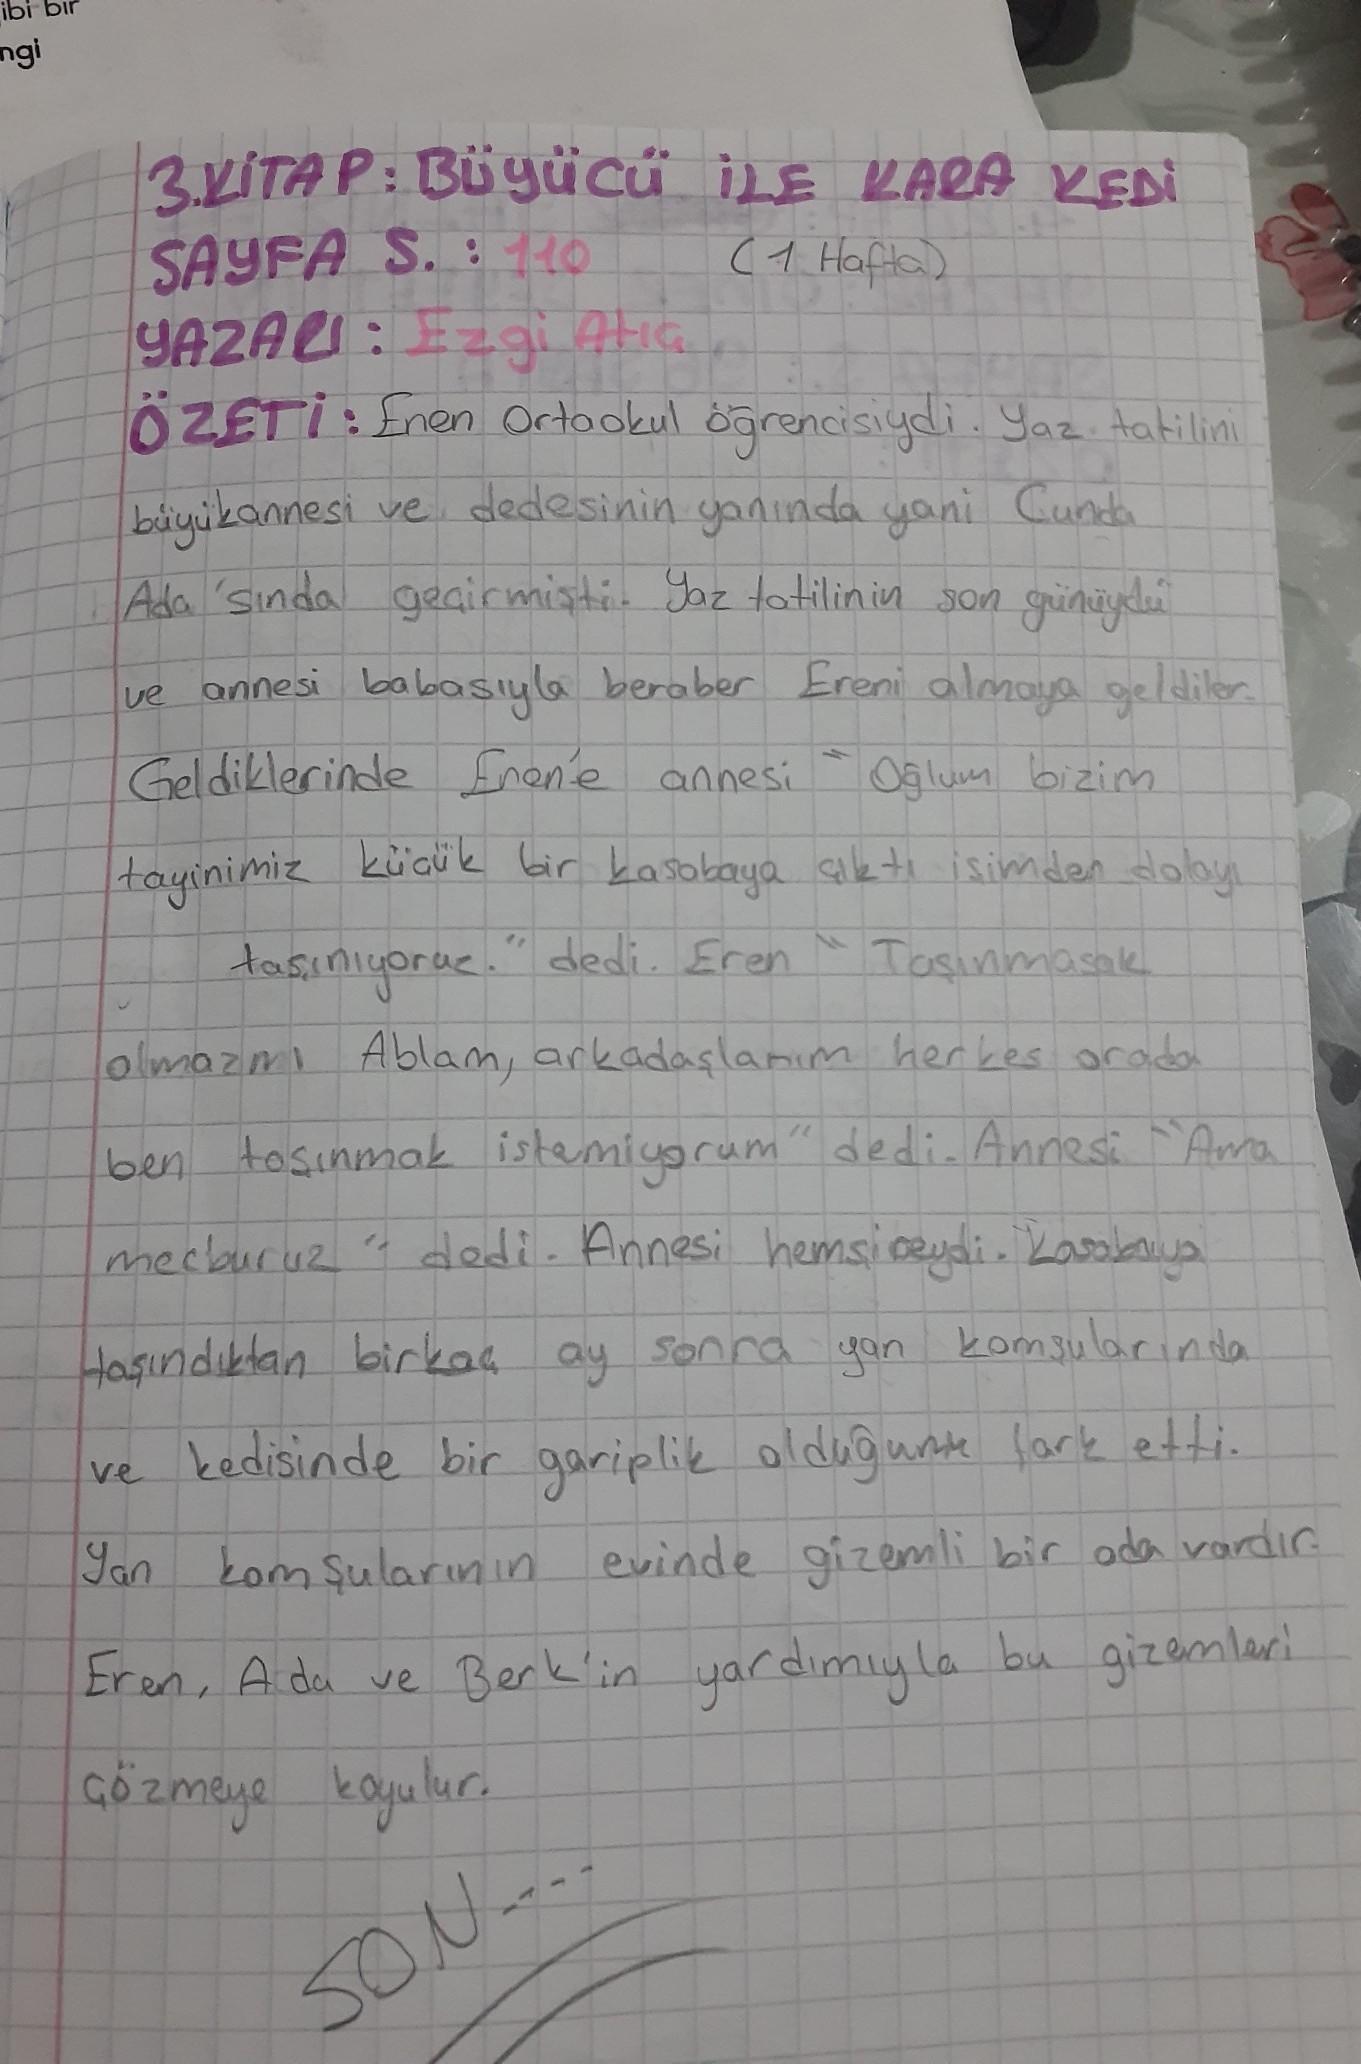 ibi bir
ngi
3.KİTAP: BÜYÜCÜ İLE KARA KEDİ
SAYFA S. : 110 (1 Hafta)
YAZARI : Ezgi Atıç
ÖZETİ : Eren Ortaokul öğrencisiydi. Yaz tatilini
büyükannesi ve dedesinin yanında yani Cunda
Ada'sında geçirmişti. Yaz tatilinin son günüydü
ve annesi babasıyla beraber Ereni almaya geldiler.
Geldiklerinde Eren'e annesi "Oğlum bizim
tayinimiz küçük bir kasabaya çıktı işimden dolayı
taşınıyoruz." dedi. Eren "Taşınmasak
olmazmı Ablam, arkadaşlarım herkes orada
ben taşınmak istemiyorum" dedi. Annesi "Ama
mecburuz" dedi. Annesi hemşireydi. Kasabaya
taşındıktan birkaç ay sonra yan komşularında
ve kedisinde bir gariplik olduğunu fark etti.
Yan komşularının evinde gizemli bir oda vardır.
Eren, Ada ve Berk'in yardımıyla bu gizemleri
çözmeye koyulur.
SON....